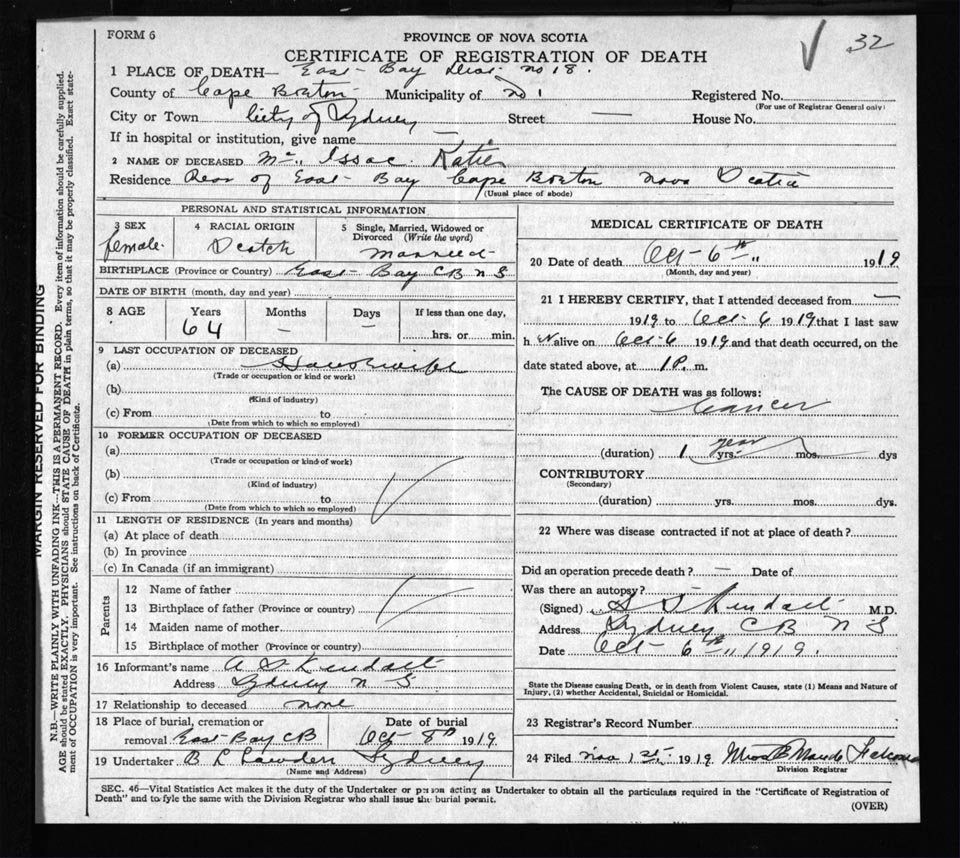 FORM 6
PROVINCE OF NOVA SCOTIA
32
CERTIFICATE OF REGISTRATION OF DEATH
1 PLACE OF DEATH— East Bay Dist. no 18.
County of Cape Breton Municipality of no 1 Registered No.
(For use of Registrar General only)
City or Town City of Sydney Street — House No.
If in hospital or institution, give name —
2 NAME OF DECEASED Mc Issac Katie
Residence Rear of East Bay Cape Breton Nova Scotia
(Usual place of abode)
PERSONAL AND STATISTICAL INFORMATION
3 SEX
female.
4 RACIAL ORIGIN
Scotch
5 Single, Married, Widowed or Divorced (Write the word)
married
BIRTHPLACE (Province or Country) East Bay CB NS
DATE OF BIRTH (month, day and year)
8 AGE Years Months Days If less than one day,
64 — — hrs. or min.
9 LAST OCCUPATION OF DECEASED
(a) Housewife
(Trade or occupation or kind or work)
(b)
(Kind of industry)
(c) From to
(Date from which to which so employed)
10 FORMER OCCUPATION OF DECEASED
(a)
(Trade or occupation or kind of work)
(b)
(Kind of industry)
(c) From to
(Date from which to which so employed)
11 LENGTH OF RESIDENCE (In years and months)
(a) At place of death
(b) In province
(c) In Canada (if an immigrant)
Parents
12 Name of father
13 Birthplace of father (Province or country)
14 Maiden name of mother
15 Birthplace of mother (Province or country)
16 Informant's name A D Kendall
Address Sydney N S
17 Relationship to deceased none
18 Place of burial, cremation or removal East Bay CB
Date of burial
Oct 8th 1919
19 Undertaker B L Sydney
(Name and Address)
MEDICAL CERTIFICATE OF DEATH
20 Date of death Oct 6th " 1919
(Month, day and year)
21 I HEREBY CERTIFY, that I attended deceased from —
1919 to Oct 6 1919 that I last saw
h er alive on Oct 6 1919 and that death occurred, on the
date stated above, at 1 P. m.
The CAUSE OF DEATH was as follows:
Cancer
(duration) 1 year yrs. mos. dys
CONTRIBUTORY
(Secondary)
(duration) yrs. mos. dys.
22 Where was disease contracted if not at place of death?
Did an operation precede death? — Date of
Was there an autopsy?
(Signed) Kendall M.D.
Address Sydney C B N S
Date Oct 6th " 1919.
State the Disease causing Death, or in death from Violent Causes, state (1) Means and Nature of
Injury, (2) whether Accidental, Suicidal or Homicidal.
23 Registrar's Record Number
24 Filed Nov 1st 1919 Maude
Division Registrar
SEC. 46—Vital Statistics Act makes it the duty of the Undertaker or person acting as Undertaker to obtain all the particulars required in the "Certificate of Registration of
Death" and to fyle the same with the Division Registrar who shall issue the burial permit.
(OVER)
MARGIN RESERVED FOR BINDING
N.B.—WRITE PLAINLY WITH UNFADING INK—THIS IS A PERMANENT RECORD. Every item of information should be carefully supplied.
AGE should be stated EXACTLY. PHYSICIANS should STATE CAUSE OF DEATH in plain terms, so that it may be properly classified. Exact state-
ment of OCCUPATION is very important. See instructions on back of Certificate.